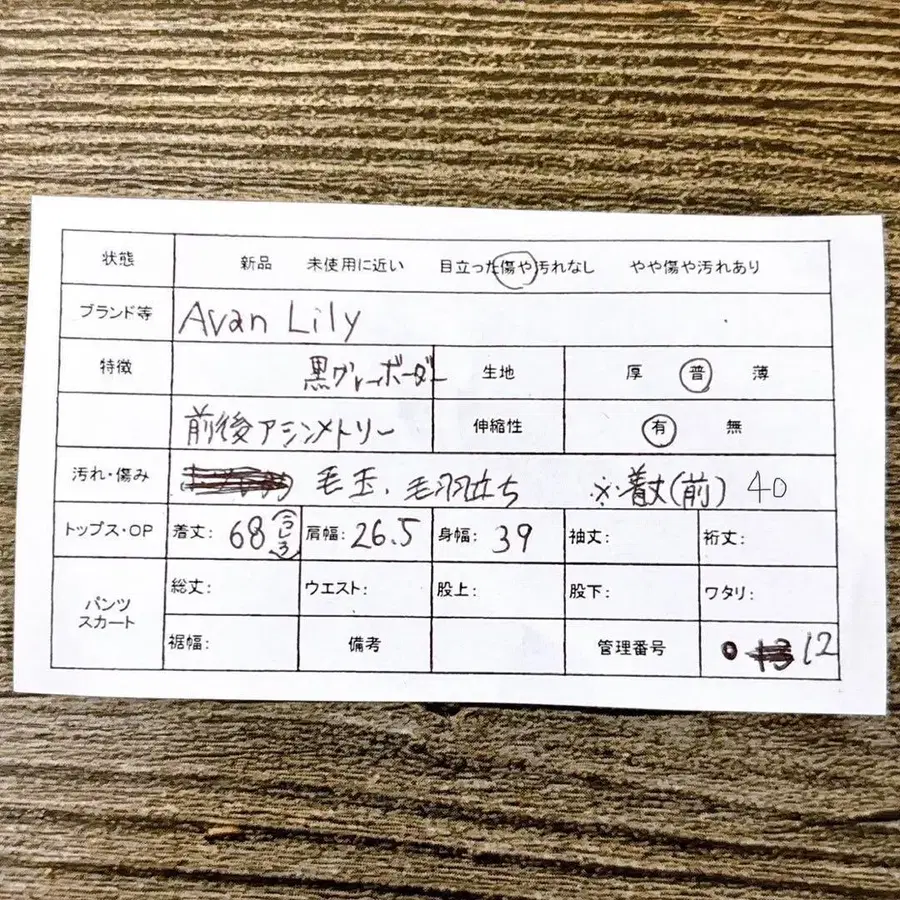 状態 新品 未使用に近い 目立った傷や汚れなし やや傷や汚れあり
ブランド等 Avan Lily
特徴 黒グレーボーダー 生地 厚 普 薄
前後アシンメトリー 伸縮性 有 無
汚れ・傷み 毛玉、毛羽立ち ※着丈(前) 40
トップス・OP 着丈: 68 (うしろ) 肩幅: 26.5 身幅: 39 袖丈: 裄丈:
パンツ スカート 総丈: ウエスト: 股上: 股下: ワタリ:
裾幅: 備考 管理番号 12